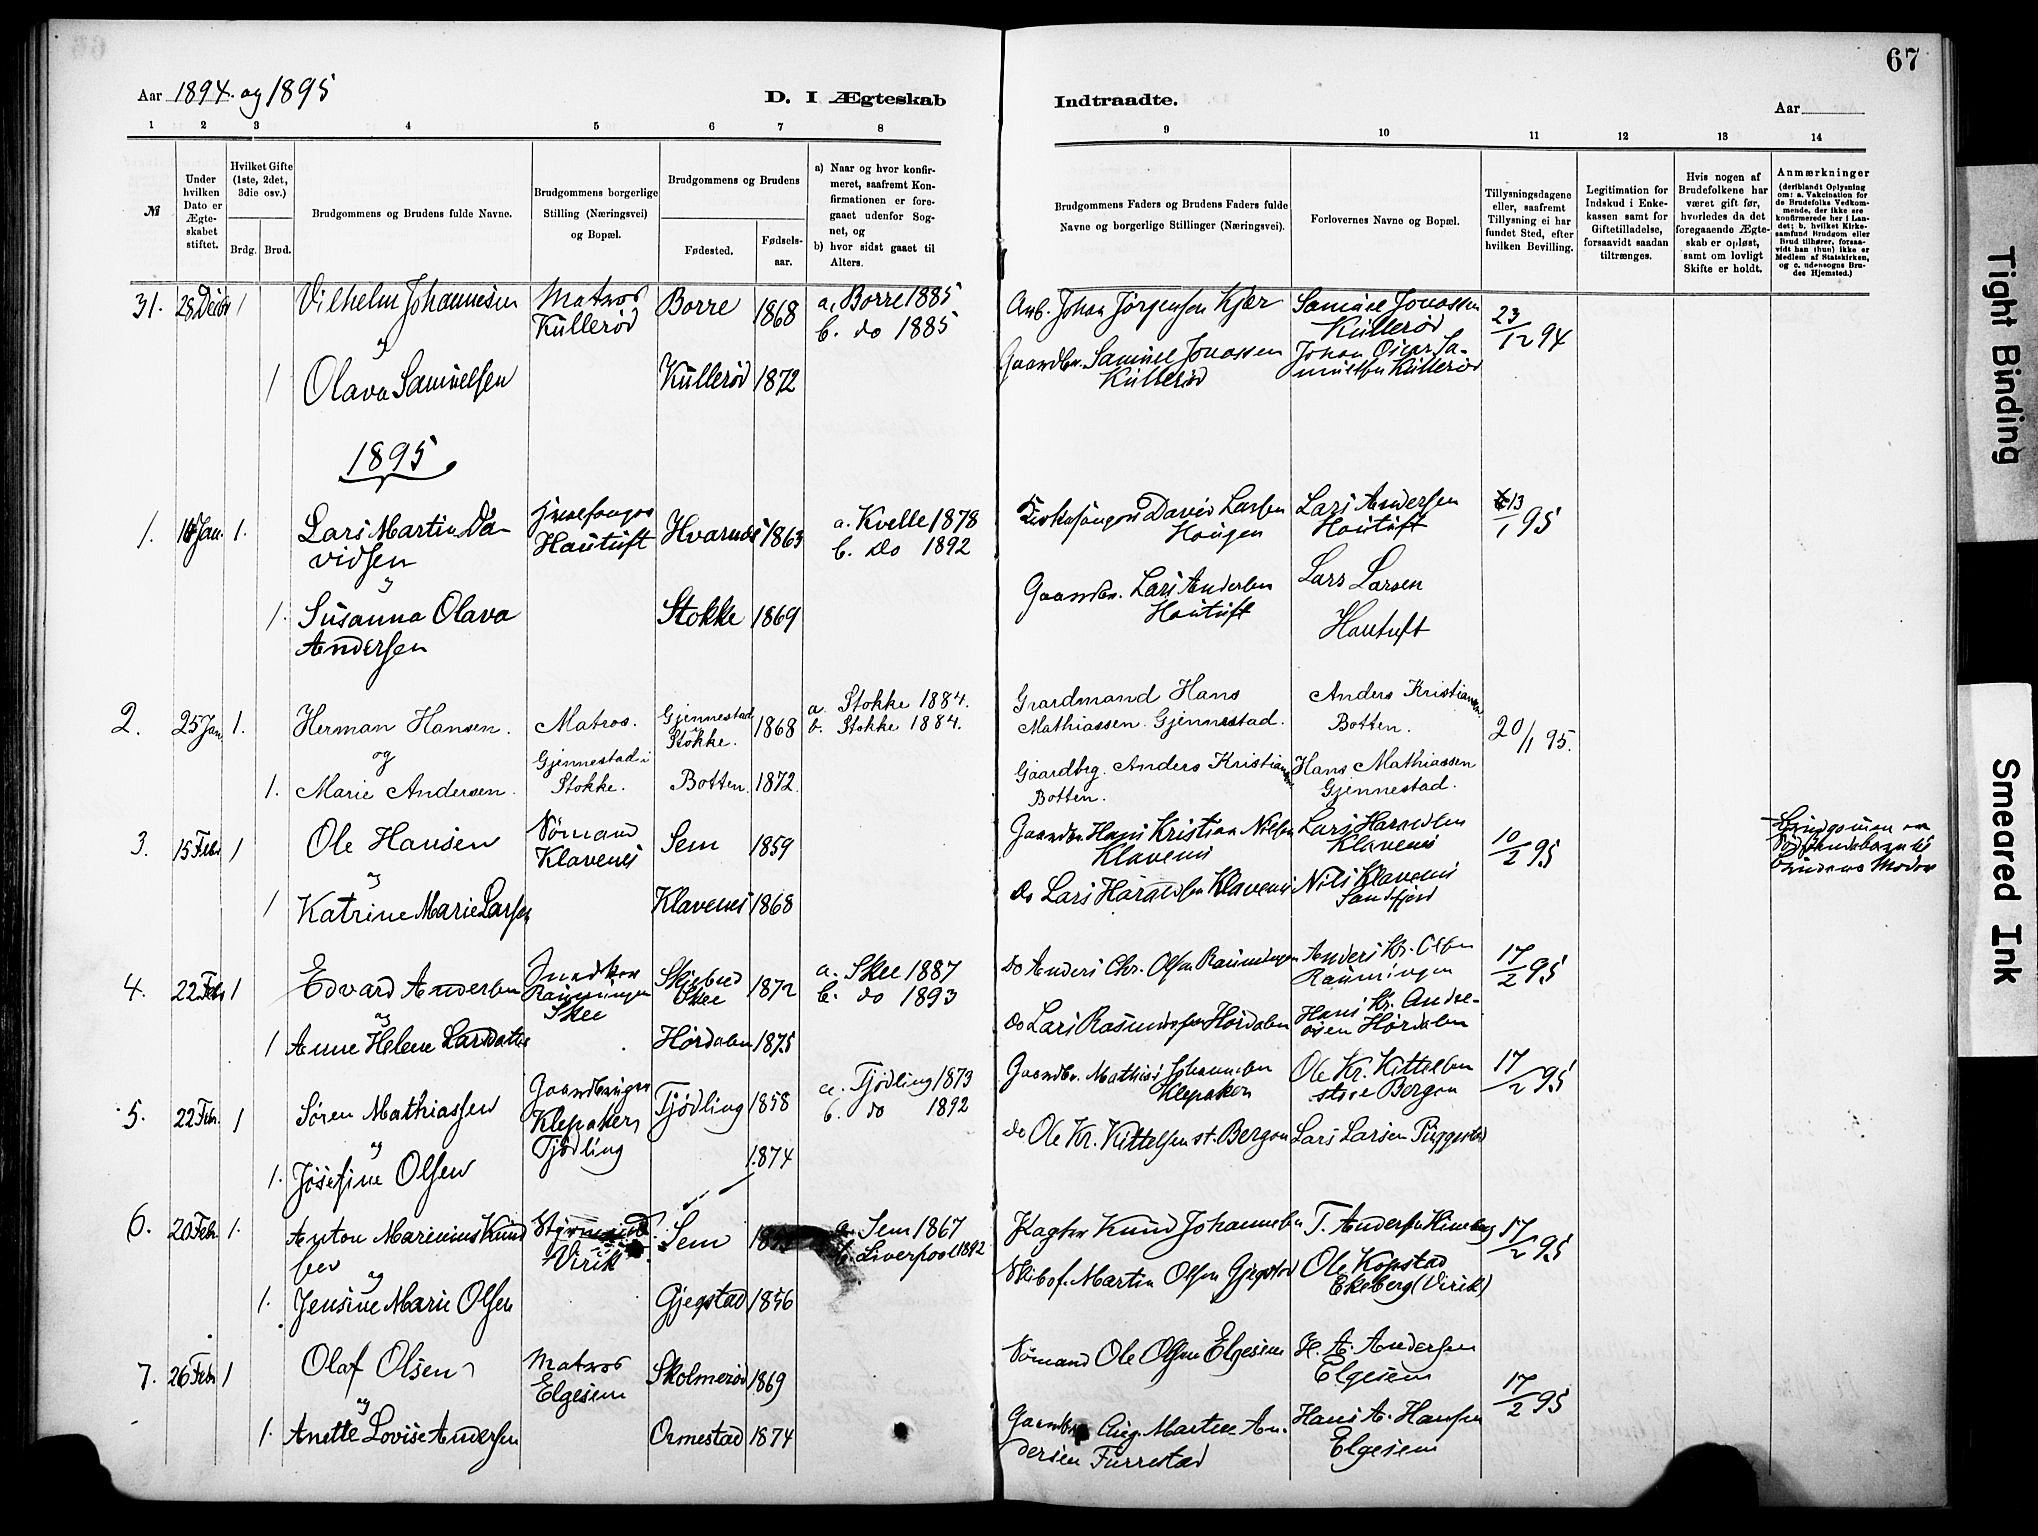 67
Aar 1894 og 1895
D. I Ægteskab
Indtraadte.
Aar
1 2 3 4 5 6 7 8 9 10 11 12 13 14
№
Under hvilken Dato er Ægteskabet stiftet.
Hvilket Gifte (1ste, 2det, 3die osv.)
Brdg. Brud.
Brudgommens og Brudens fulde Navne.
Brudgommens borgerlige Stilling (Næringsvei) og Bopæl.
Brudgommens og Brudens
Fødested.
Fødsels-aar.
a) Naar og hvor konfirmeret, saafremt Konfirmationen er foregaaet udenfor Sognet, og
b) hvor sidst gaaet til Alters.
Brudgommens Faders og Brudens Faders fulde Navne og borgerlige Stillinger (Næringsvei).
Forlovernes Navne og Bopæl.
Tillysningsdagene eller, saafremt Tillysning ei har fundet Sted, efter hvilken Bevilling.
Legitimation for Indskud i Enkekassen samt for Giftetilladelse, forsaavidt saadan tiltrænges.
Hvis nogen af Brudefolkene har været gift før, hvorledes da det foregaaende Ægteskab er opløst, samt om lovligt Skifte er holdt.
Anmærkninger
(deriblandt Oplysning om: a. Vakcination for de Brudefolks Vedkommende, der ikke ere konfirmerede her i Landet; b. hvilket Kirkesamfund Brudgom eller Brud tilhører, forsaavidt han (hun) ikke er Medlem af Statskirken, og c. udensogns Brudes Hjemsted.)
31. 28 Decbr 1 Vilhelm Johannesen Matros Kullerød Borre 1868 a. Borre 1885 b. do 1885 Arb. Johan Jørgensen Kjær Samuel Jonassen Kullerød 23/12 94
og
1 Olava Samuelsen Kullerød 1872 Gaardbr. Samuel Jonassen Kullerød Johan Oscar Samuelsen Kullerød
1895
1. Jan. 1. Lars Martin Davidsen Hautuft Hvarnes 1863 a. Kvelle 1878 b. Do 1892 Kirkesanger David Larsen Haugen Lars Andersen Hautuft 13/1 95
og
1. Susanna Olava Andersen Stokke 1869 Gaardbr. Lars Andersen Hautuft Lars Larsen Hautuft
2. 25 Jan 1. Herman Hansen. Matros. Gjennestad i Stokke. Gjennestad Stokke. 1868 a. Stokke 1884. b. Stokke 1884. Gaardmand Hans Mathiassen Gjennestad. Anders Kristiansen Botten. 20/1 95.
og
1. Marie Andersen. Botten. 1872. Gaardbrg. Anders Kristiansen Botten. Hans Mathiassen Gjennestad.
3. 15 Febr 1 Ole Hansen Sømand Klavenes Sem 1859 Gaardbr. Hans Kristian Nilsen Klavenes Lars Haraldsen Klavenes 10/2 95 Brudgommen er Sødskendebarn til Brudens Moder
og
1 Katrine Marie Larsen Klavenes 1868 Do Lars Haraldsen Klavenes Nils Klavenes Sandfjord
4. 22 Febr 1 Edvard Andersen Ranningen Skee Skjebred Skee 1872 a. Skee 1887 b. do 1893 Do Anders Chr. Olsen Ranningen Anders Kr. Olsen Ranningen 17/2 95
og
1 Anne Helene Larsdatter Hørdalen 1875 do Lars Rasmussen Hørdalen Hans Kr. Andresen Hørdalen
5. 22 Febr. 1 Søren Mathiassen Gaardbruger Klepaker Tjødling Tjødling 1858 a. Tjødling 1873 b. do 1892 Gaardbr. Mathias Johannesen Klepaker Ole Kr. Kittelsen store Bergan 17/2 95
og
1. Josefine Olsen 1874 do Ole Kr. Kittelsen st. Bergan Lars Larsen Puggestad
6. 20 Febr 1. Anton Marinius Knudsen Styrmand Virik Sem a. Sem 1867 b. Liverpool 1892 Knud Johannesen T. Andersen 17/2 95
og
1. Jensine Marie Olsen Gjegstad 1856 Skibsf. Martin Olsen Gjegstad Ole Kopstad Ekeberg (Virik)
7. 26 Febr 1 Olaf Olsen Matros Elgesem Skolmerød 1869 Sømand Ole Olsen Elgesem H. A. Andersen Elgesem 17/2 95
og
1. Anette Lovise Andersen Ormestad 1874 Gaardbr. Aug. Martin Andersen Furrestad Hans A. Hansen Elgesem
Tight Binding
Smeared Ink